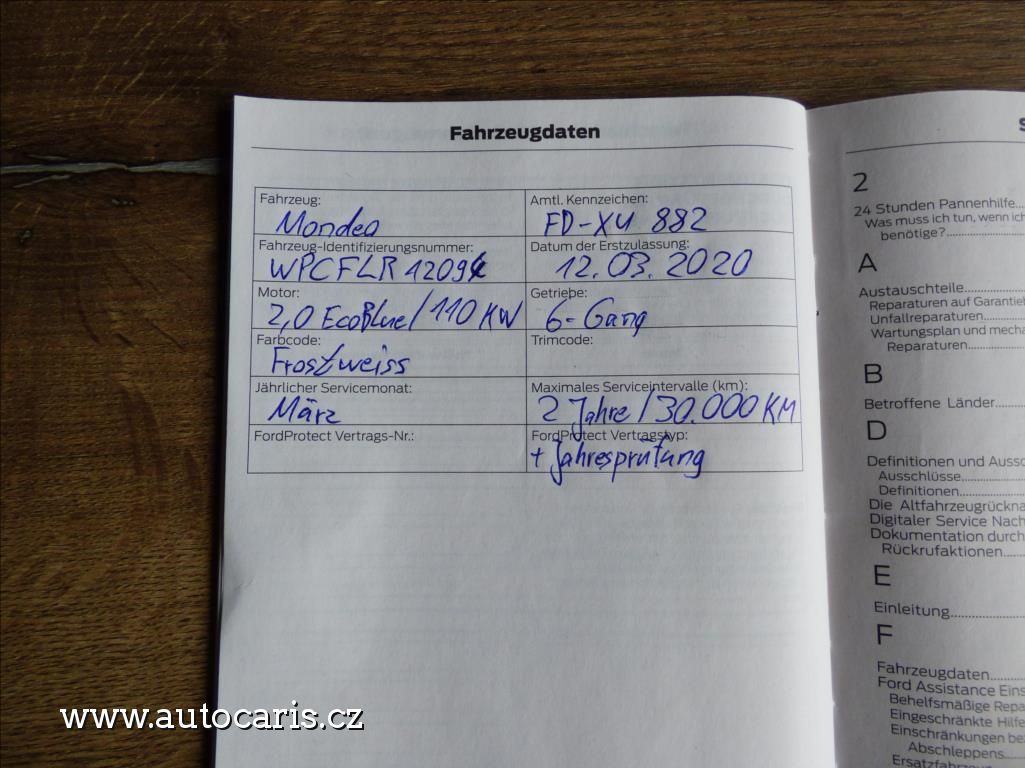 Fahrzeugdaten
Fahrzeug:
Mondeo
Amtl. Kennzeichen:
FD-XU 882
Fahrzeug-Identifizierungsnummer:
WPCFLR 1209
Datum der Erstzulassung:
12.03.2020
Motor:
2,0 EcoBlue/110 KW
Getriebe:
6-Gang
Farbcode:
Frostweiss
Trimcode:
Jährlicher Servicemonat:
März
Maximales Serviceintervalle (km):
2 Jahre/30.000 KM
FordProtect Vertrags-Nr.:
FordProtect Vertragstyp:
+ Jahresprüfung
2
24 Stunden Pannenhilfe...
Was muss ich tun, wenn ich
benötige?...............
A
Austauschteile...............
Reparaturen auf Garantie
Unfallreparaturen...............
Wartungsplan und mecha
Reparaturen...............
B
Betroffene Länder...............
D
Definitionen und Aussc
Ausschlüsse...............
Definitionen...............
Die Altfahrzeugrückna
Digitaler Service Nach
Dokumentation durch
Rückrufaktionen...............
E
Einleitung...............
F
Fahrzeugdaten...............
Ford Assistance Eins
Behelfsmäßige Repa
Eingeschränkte Hilfe
Einschränkungen be
Abschleppens...
Ersatzfahrzeug
www.autocaris.cz